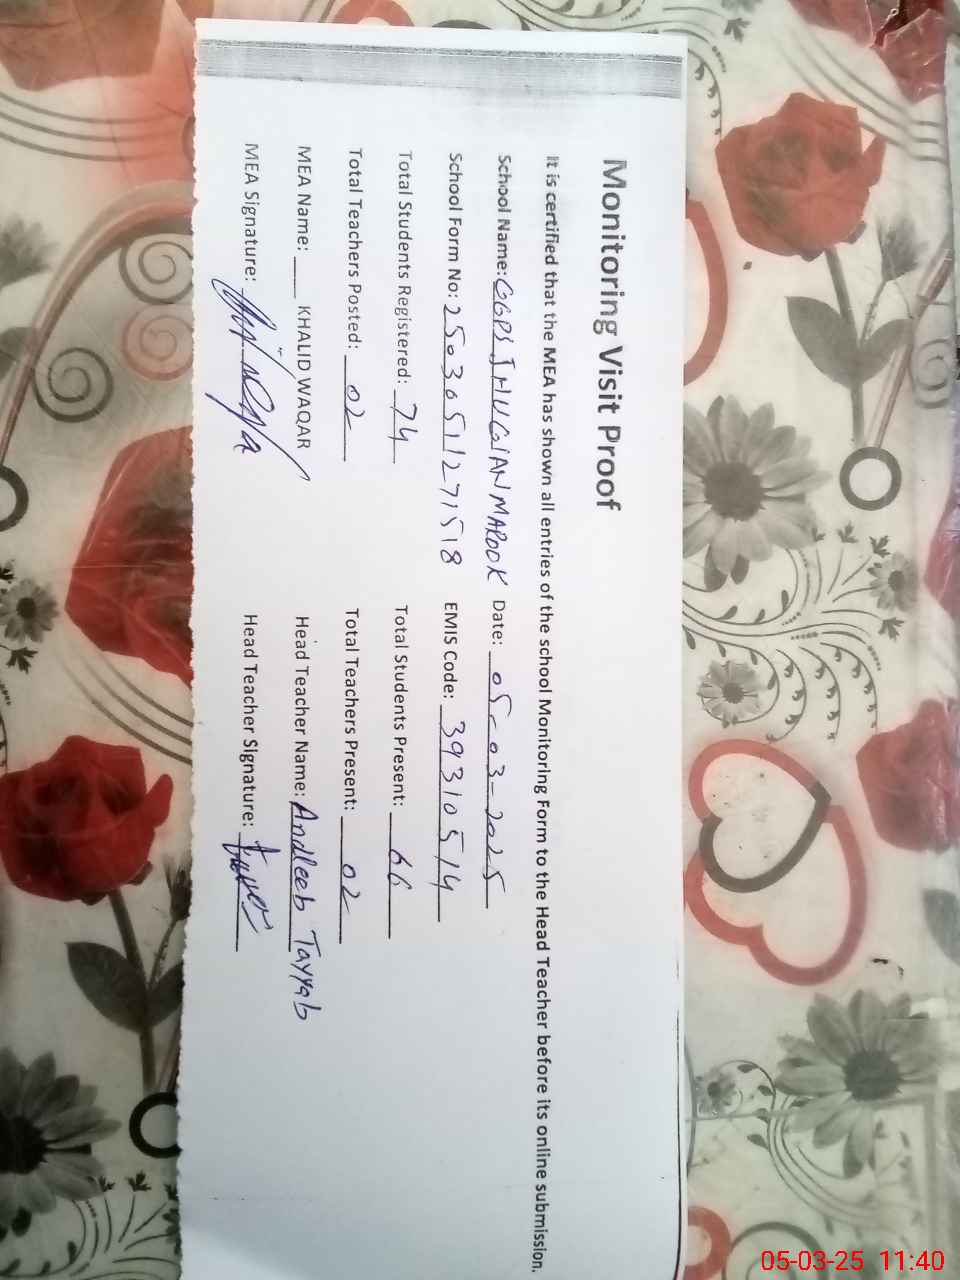 Monitoring Visit Proof
It is certified that the MEA has shown all entries of the school Monitoring Form to the Head Teacher before its online submission.
School Name: GGPS JHUGIAN MAROOK Date: 05-03-2025
School Form No: 25030511271518 EMIS Code: 39310514
Total Students Registered: 74 Total Students Present: 66
Total Teachers Posted: 02 Total Teachers Present: 02
MEA Name: KHALID WAQAR Head Teacher Name: Andleeb Tayyab
MEA Signature: Head Teacher Signature:
05-03-25 11:40